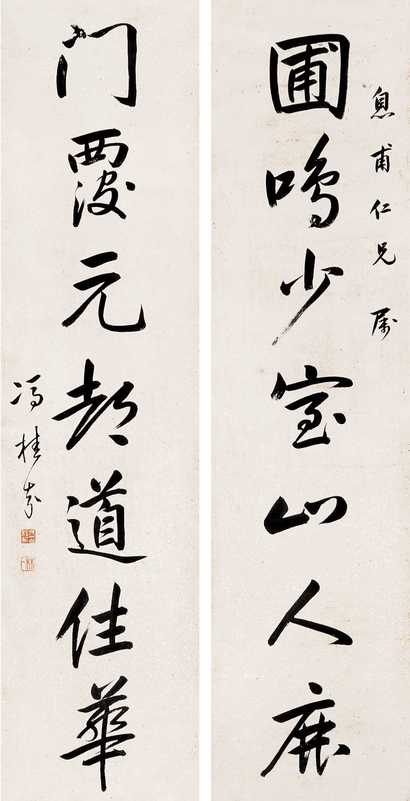 息甫仁兄属
圃鸣少室山人鹿
门覆元都道佳華
冯桂芬